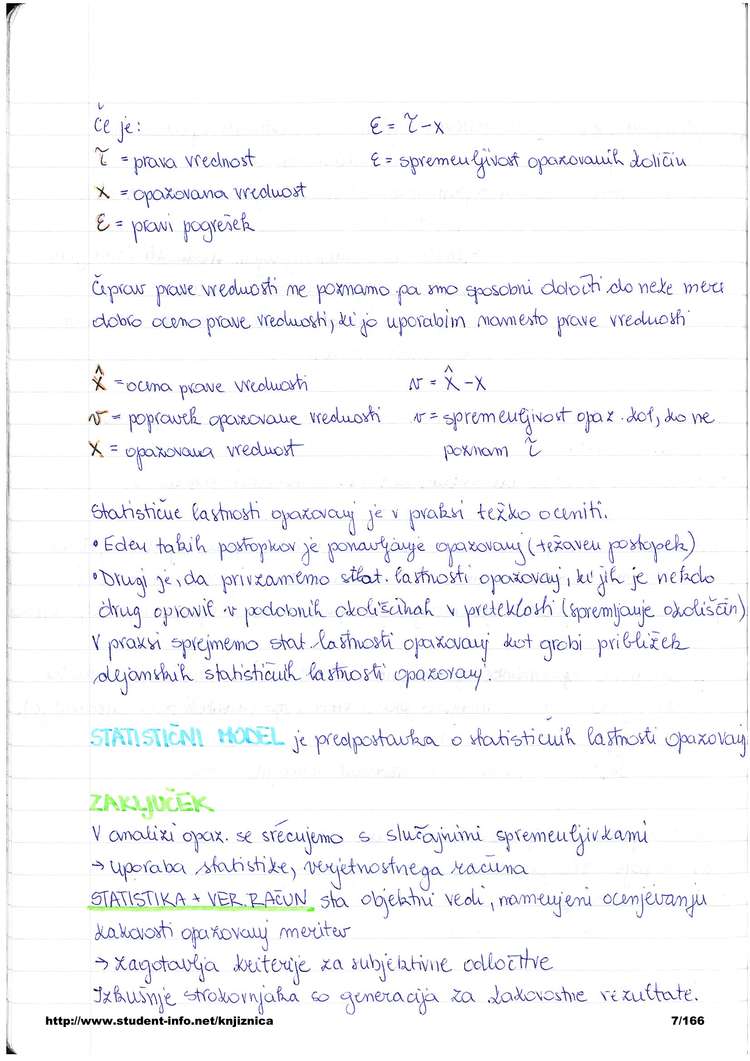 Če je: ε = τ - x
τ = prava vrednost ε = spremenljivost opazovanih količin
x = opazovana vrednost
ε = pravi pogrešek
Čeprav prave vrednosti ne poznamo pa smo sposobni določiti do neke mere
dobro oceno prave vrednosti, ki jo uporabim namesto prave vrednosti
x̂ = ocena prave vrednosti v = x̂ - x
v = popravek opazovane vrednosti v = spremenljivost opaz. kol, ko ne
x = opazovana vrednost poznam τ
Statistične lastnosti opazovanj je v praksi težko oceniti.
• Eden takih postopkov je ponavljanje opazovanj (težaven postopek)
• Drugi je, da privzamemo stat. lastnosti opazovanj, ki jih je nekdo
drug opravil v podobnih okoliščinah v preteklosti (spremljanje okoliščin)
V praksi sprejmemo stat. lastnosti opazovanj kot grobi približek
dejanskih statističnih lastnosti opazovanj.
STATISTIČNI MODEL je predpostavka o statističnih lastnosti opazovanj
ZAKLJUČEK
V analizi opaz. se srečujemo s slučajnimi spremenljivkami
→ uporaba statistike, verjetnostnega računa
STATISTIKA + VER. RAČUN sta objektni vedi, namenjeni ocenjevanju
kakovosti opazovanj meritev
→ zagotavlja kriterije za subjektivne odločitve
Izkušnje strokovnjaka so generacija za kakovostne rezultate.
http://www.student-info.net/knjiznica 7/166